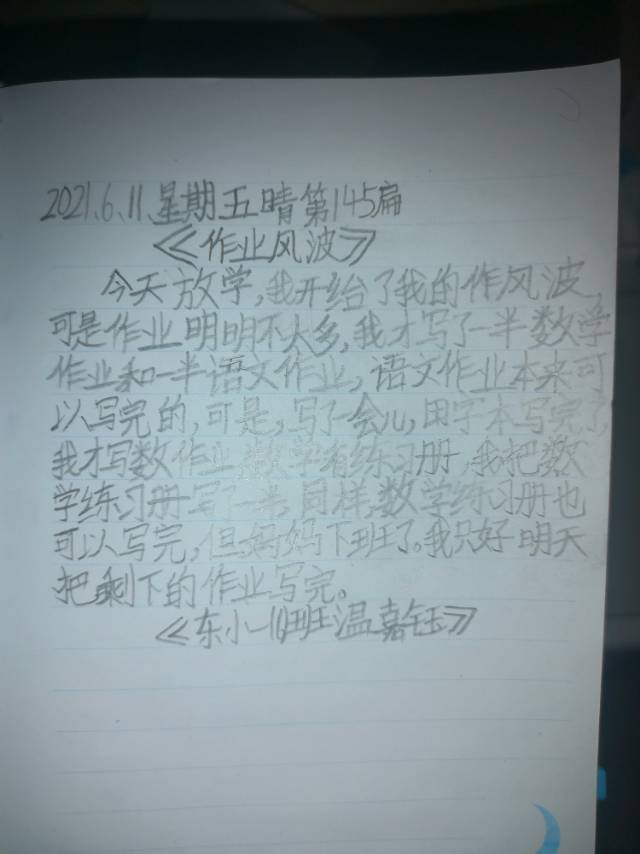 2021、6、11、星期五晴第145扁
《作业风波》
今天放学,我开给了我的作风波,
可是作业明明不大多,我才写了一半数学
作业和一半语文作业,语文作业本来可
以写完的,可是,写了会儿,田字本写完了,
我才写数作业,数学有练习册,我把数
学练习册写了一半,同样,数学练习册也
可以写完,但妈妈下班了。我只好明天
把剩下的作业写完。
《东小一(10)班温嘉钰》